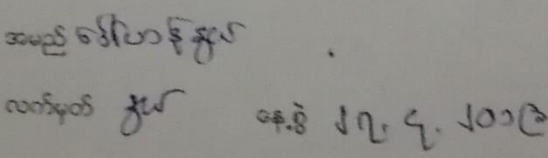 အမည် ဒေါ်ဟာန်နွယ်
လက်မှတ် နွယ် နေ့စွဲ ၂၇. ၄. ၂၀၁၆